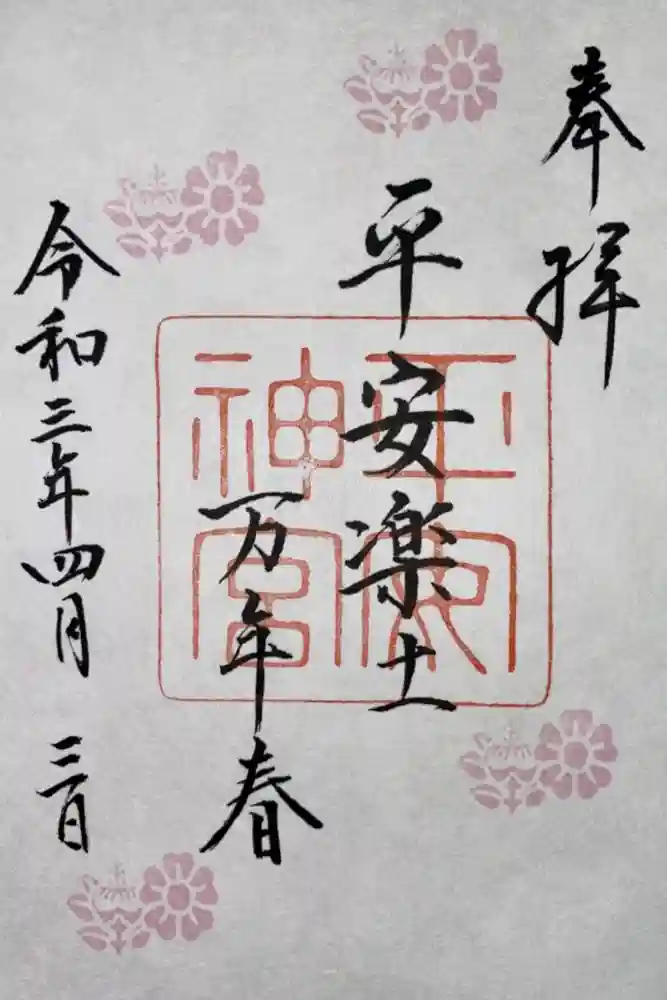 奉拝
平安楽土
万年春
令和三年四月三日
平安
神宮